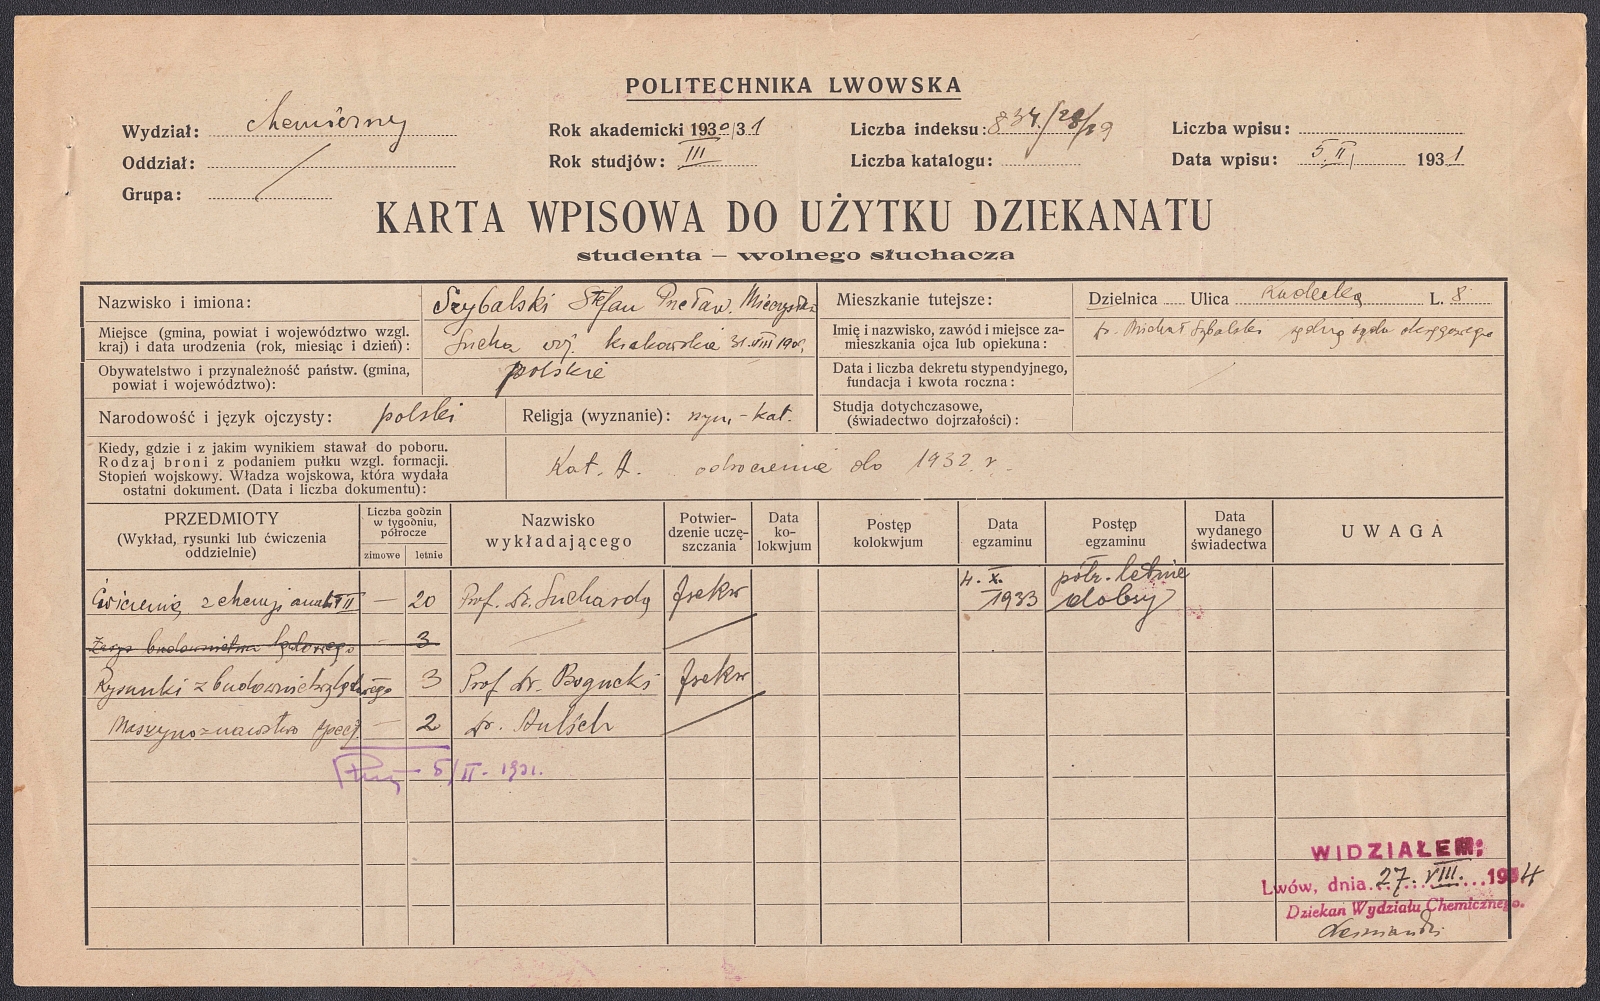 POLITECHNIKA LWOWSKA
Wydział: chemiczny
Rok akademicki 1930/31
Liczba indeksu: 834/28/29
Liczba wpisu:
Oddział:
Rok studjów: III
Liczba katalogu:
Data wpisu: 5.II. 1931
Grupa:
KARTA WPISOWA DO UŻYTKU DZIEKANATU
studenta – wolnego słuchacza
Nazwisko i imiona: Szybalski Stefan Mieczysław
Mieszkanie tutejsze: Dzielnica Ulica Kadecka L. 8
Miejsce (gmina, powiat i województwo wzgl. kraj) i data urodzenia (rok, miesiąc i dzień): Sucha woj. krakowskie 31.VIII 190
Imię i nazwisko, zawód i miejsce zamieszkania ojca lub opiekuna: Dr. Michał Szybalski sędzia sądu okręgowego
Obywatelstwo i przynależność państw. (gmina, powiat i województwo): polskie
Data i liczba dekretu stypendyjnego, fundacja i kwota roczna:
Narodowość i język ojczysty: polski
Religja (wyznanie): rzym.-kat.
Studja dotychczasowe, (świadectwo dojrzałości):
Kiedy, gdzie i z jakim wynikiem stawał do poboru.
Rodzaj broni z podaniem pułku wzgl. formacji.
Stopień wojskowy. Władza wojskowa, która wydała
ostatni dokument. (Data i liczba dokumentu):
Kat. A. odroczenie do 1932 r.
PRZEDMIOTY
(Wykład, rysunki lub ćwiczenia oddzielnie)
Liczba godzin w tygodniu, półrocze
zimowe letnie
Nazwisko wykładającego
Potwierdzenie uczęszczania
Data kolokwjum
Postęp kolokwjum
Data egzaminu
Postęp egzaminu
Data wydanego świadectwa
UWAGA
Ćwiczenia z chemji anal. II — 20 Prof. Dr. Suchardą frekw 4. X. 1933 półr. letnie dobry
Zasp budownictwa lądowego — 3
Rysunki z budownictwa lądowego 3 Prof. Dr. Bogucki frekw
Maszynoznawstwo specj. — 2 Dr. Stulich
5/II. 1931.
WIDZIAŁEM:
Lwów, dnia 27. VIII. 1934
Dziekan Wydziału Chemicznego.